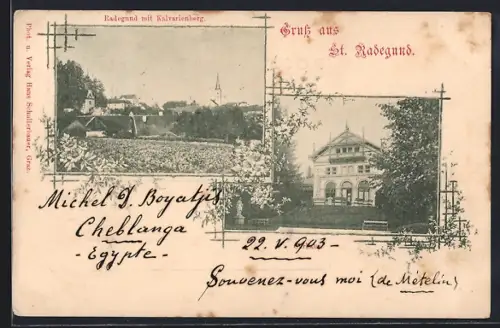 Radegund mit Kalvarienberg.
Gruß aus
St. Radegund.
Phot. u. Verlag Hans Schullerbauer, Graz.
Michel D. Boyatjis
Cheblanga
- Egypte -
22. V. 903 -
Souvenez-vous moi (de Mételin)